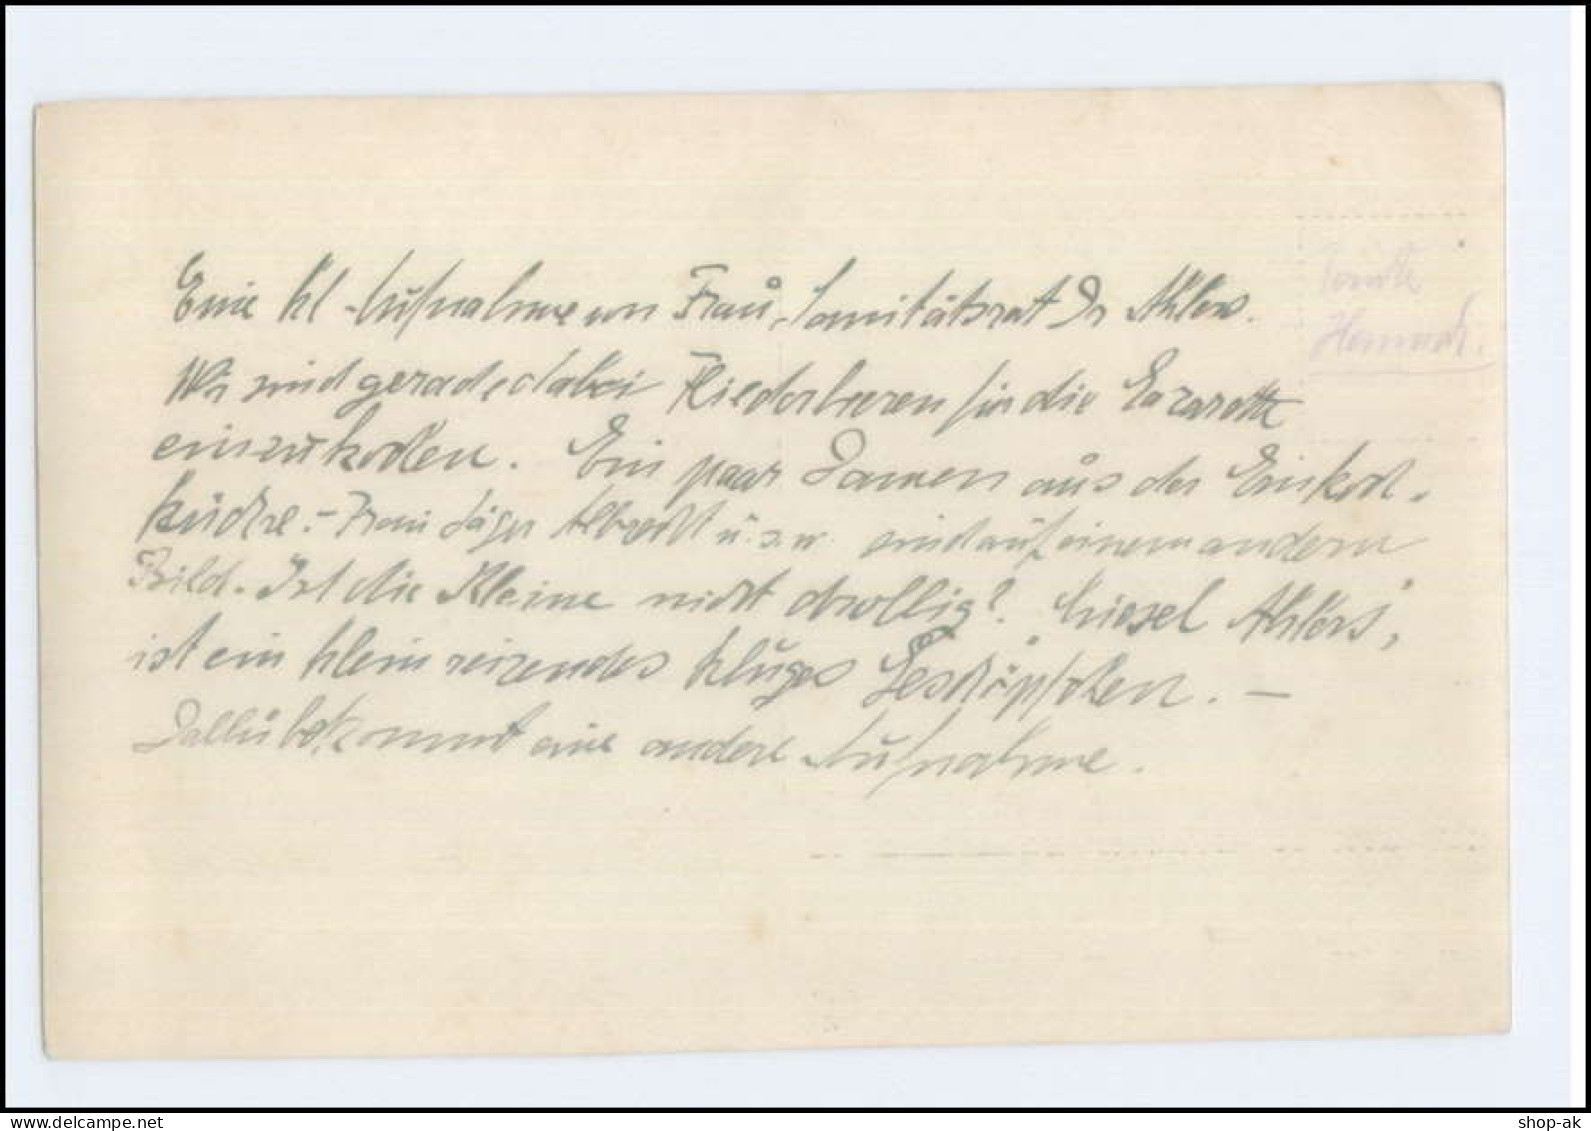 Eine kl Aufnahme von Frau Sanitätsrat Dr Ahlers.
Wir sind gerade dabei Fliederbeeren für die Lazarette
einzukochen. Ein paar Damen aus der Einkoch-
küche:- Frau Jäger Albrecht u.s.w. sind auf einem andern
Bild. Ist die Kleine nicht drollig? Liesel Ahlers,
ist ein klein reizendes kluges Geschöpfchen. -
kommt eine andere Aufnahme.
shop-ak